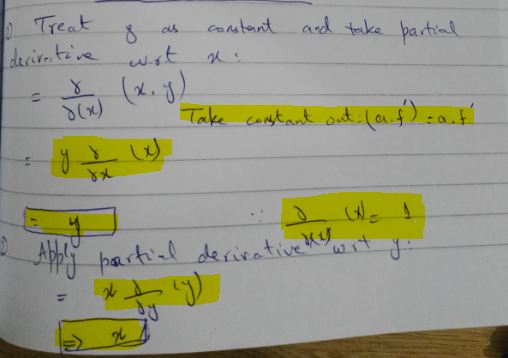 Treat y as constant and take partial
derivative wrt x:
= ∂/∂(x) (x.y)
Take constant out: (a.f)' = a.f'
= y ∂/∂x (x)
= y ∵ ∂/∂(x) (x) = 1
Apply partial derivative wrt y:
= x ∂/∂y (y)
⇒ x